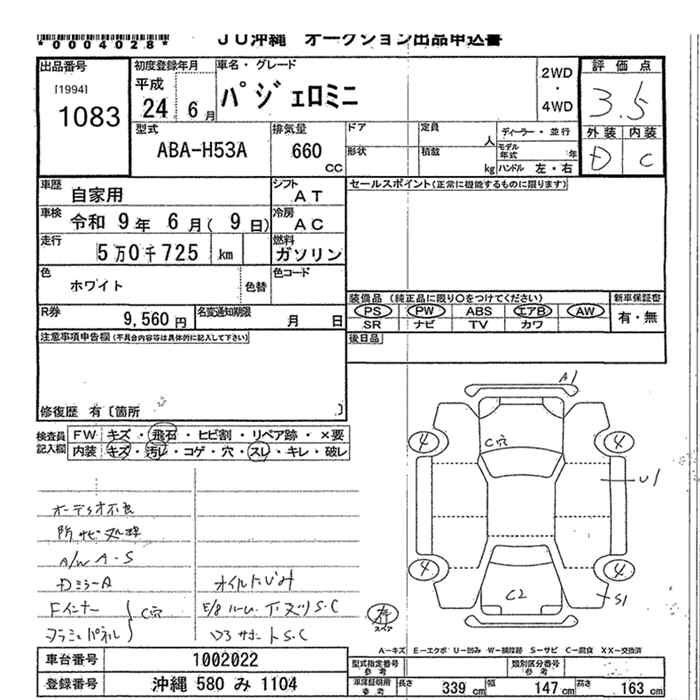 *0004028* JU沖縄 オークション出品申込書
出品番号 [1994] 1083
初度登録年月 平成 24.6月
車名・グレード パジェロミニ
2WD・4WD
評価点 3.5
外装 D 内装 C
型式 ABA-H53A
排気量 660 CC
ドア 形状
定員 人 積載 kg
ディーラー・並行
モデル年式 年
ハンドル 左・右
車歴 自家用
シフト AT
セールスポイント(正常に機能するものに限ります)
車検 令和 9年 6月( 9日)
冷房 AC
走行 5万0千725 km
燃料 ガソリン
色 ホワイト 色替
色コード
装備品 (純正品に限り○をつけてください)
PS PW ABS エアB AW
SR ナビ TV カワ
新車保証書 有・無
R券 9,560円
名変通知期限 月 日
後日品
注意事項申告欄(不具合内容等は具体的に記入して下さい)
修復歴 有〔箇所 〕
検査員記入欄
FW キズ・飛石・ヒビ割・リペア跡・×要
内装 キズ・汚レ・コゲ・穴・スレ・キレ・破レ
A1
C穴
4 4
U1
4 4
C2
S1
オーディオ不良
所サビ処理
A/W A-S
DミラーA
Fインナー
C穴
オイルにじみ
S.C
S.C
スペア
A-キズ E-エクボ U-凹み W-補修跡 S-サビ C-腐食 XX-交換済
車台番号 1002022
登録番号 沖縄 580 み 1104
型式指定番号 参考
類別区分番号 参考
車庫証明用 参考 長さ 339 cm 幅 147 cm 高さ 163 cm